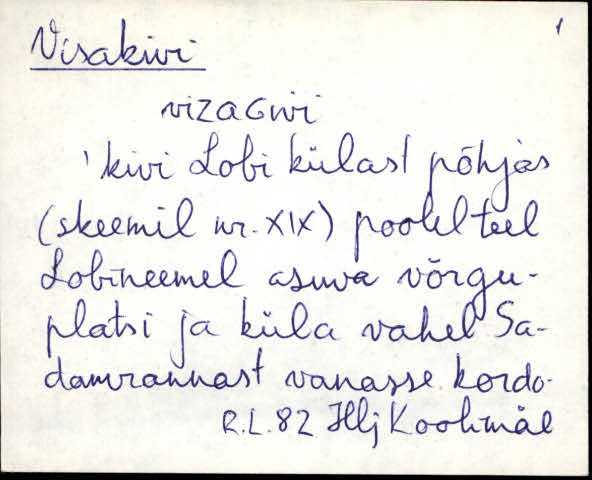 1
Visakivi
vizaGivi
'kivi Lobi külast põhjas
(skeemil nr. XIX) poolel teel
Lobineemel asuva võrgu-
platsi ja küla vahel Sa-
damrannast vanasse kordo-
R.L. 82 Hlj Koolmäe